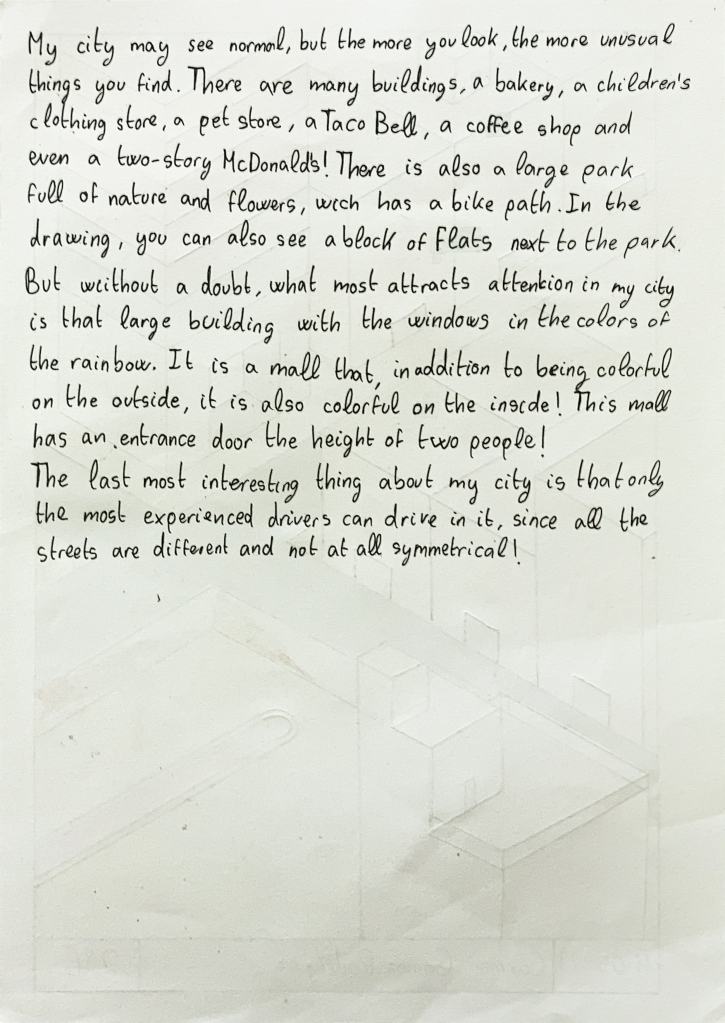 My city may see normal, but the more you look, the more unusual
things you find. There are many buildings, a bakery, a children's
clothing store, a pet store, a Taco Bell, a coffee shop and
even a two-story McDonald's! There is also a large park
full of nature and flowers, wich has a bike path. In the
drawing, you can also see a block of flats next to the park.
But without a doubt, what most attracts attention in my city
is that large building with the windows in the colors of
the rainbow. It is a mall that, in addition to being colorful
on the outside, it is also colorful on the inside! This mall
has an entrance door the height of two people!
The last most interesting thing about my city is that only
the most experienced drivers can drive in it, since all the
streets are different and not at all symmetrical!